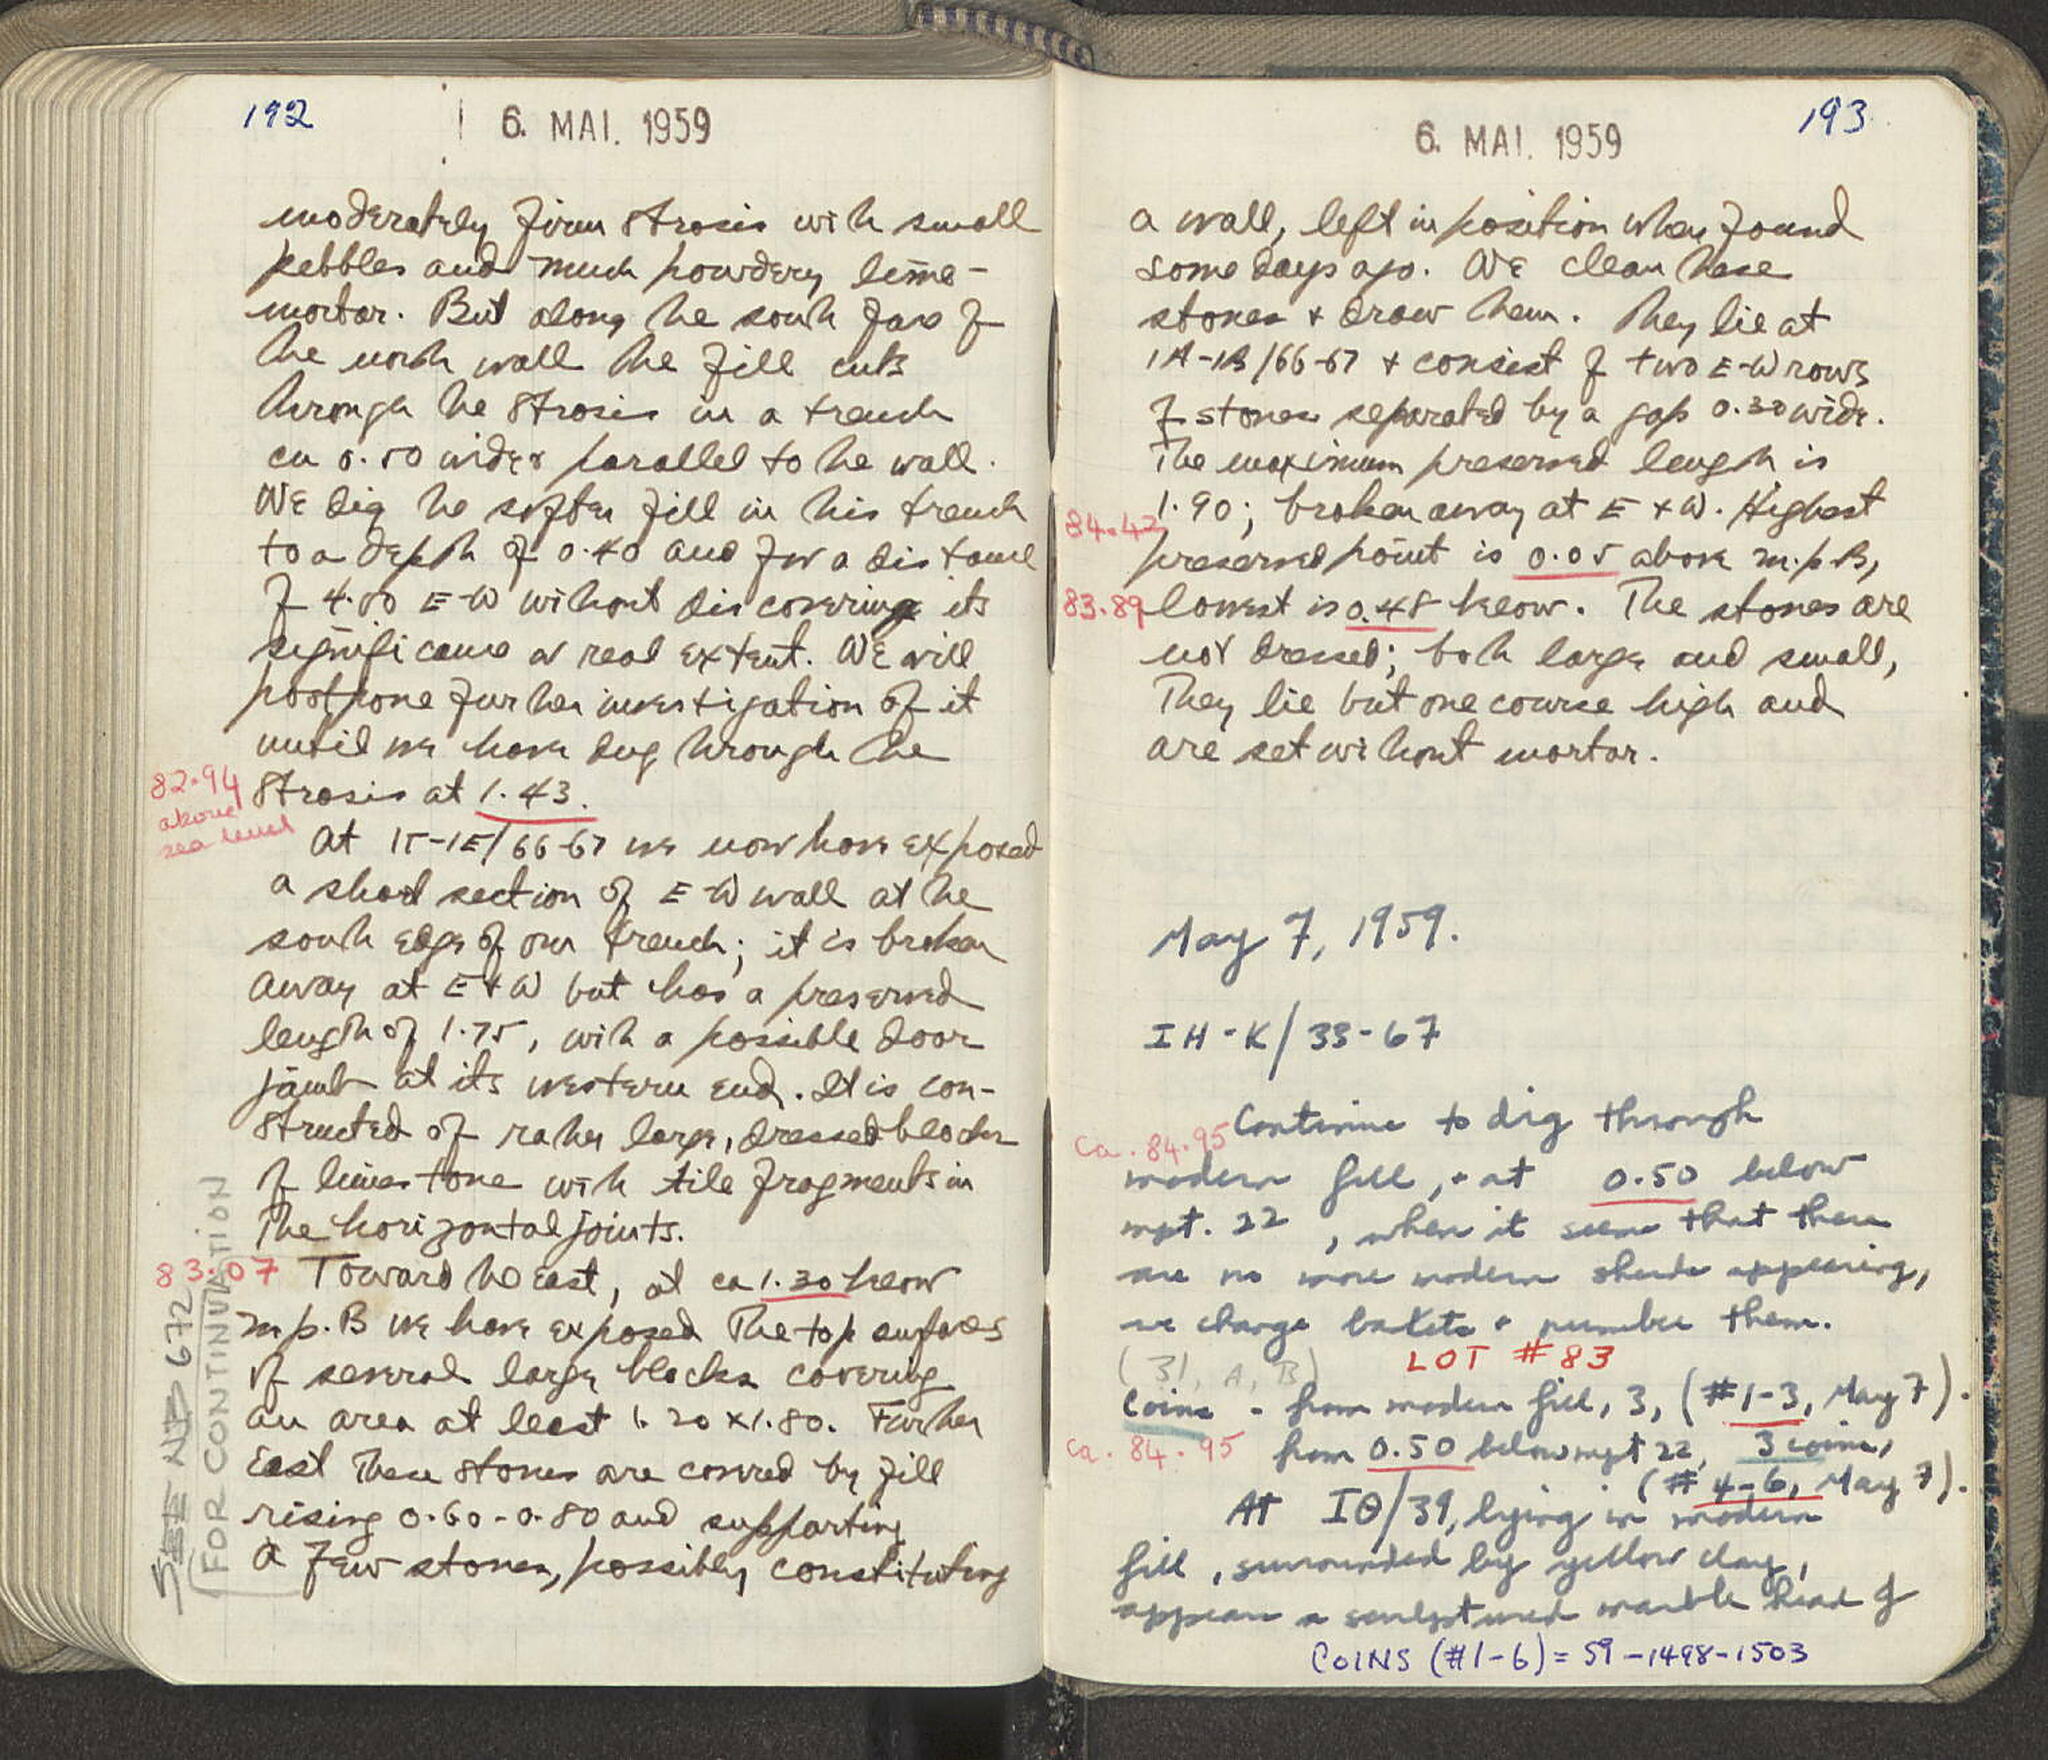 192
6. MAI. 1959
moderately firm strosis with small
pebbles and much powdery lime-
mortar. But along the south face of
the north wall the fill cuts
through the strosis in a trench
ca 0.50 wide & parallel to the wall.
We dig the softer fill in this trench
to a depth of 0.40 and for a distance
of 4.00 E-W without discovering its
significance or real extent. We will
postpone further investigation of it
until we have dug through the
82.94 above sea level
strosis at 1.43.
At ΙΓ-ΙΕ/66-67 we now have exposed
a short section of E-W wall at the
south edge of our trench; it is broken
away at E & W but has a preserved
length of 1.75, with a possible door
jamb at its western end. It is con-
structed of rather large, dressed blocks
of limestone with tile fragments in
the horizontal joints.
83.07
Toward the east, at ca 1.30 below
m.p. B we have exposed the top surfaces
of several large blocks covering
an area at least 1.20 x 1.80. Further
East these stones are covered by fill
rising 0.60-0.80 and supporting
a few stones, possibly constituting
SEE NB 672
FOR CONTINUATION
193
6. MAI. 1959
a wall, left in position when found
some days ago. We clean these
stones & draw them. They lie at
ΙΑ-ΙΒ/66-67 & consist of two E-W rows
of stones separated by a gap 0.30 wide.
The maximum preserved length is
1.90; broken away at E & W. Highest
84.42
preserved point is 0.05 above m.p. B,
83.89
lowest is 0.48 below. The stones are
not dressed; both large and small,
They lie but one course high and
are set without mortar.
May 7, 1959.
ΙΗ-Κ/33-67
Continue to dig through
ca. 84.95
modern fill, & at 0.50 below
mpt. 22, when it seems that there
are no more modern sherds appearing,
we change baskets & number them.
(31, A, B)
LOT #83
Coins - from modern fill, 3, (#1-3, May 7).
ca. 84.95
from 0.50 below mpt 22, 3 coins,
(#4-6, May 7).
At ΙΘ/39, lying in modern
fill, surrounded by yellow clay,
appears a sculptured marble head of
COINS (#1-6) = 59-1498-1503